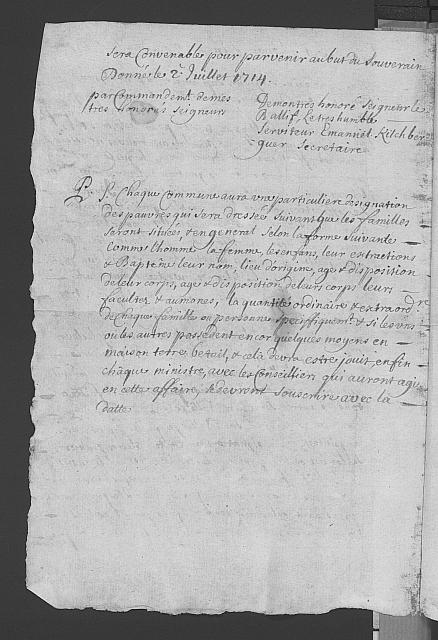 sera Convenable pour parvenir au but du Souverain
Donné le 2e Juillet 1714.
par Commandemt. de mes
tres honorés Seigneurs
De mon tres honoré Seigneur le
Ballif, Le tres humble
Serviteur Emanuel Kilchber
guer Secretaire
P.S. Chaque Commune aura une particuliere designation
des pauvres qui sera dressée suivant que les familles
seront situées & en general selon la forme suivante
Comme l'homme la femme, les enfans, leur extractions
& Baptême leur nom, lieu d'origine, age & disposition
de leur corps, age & disposition de leurs corps leurs
facultez & aumones, la quantité ordinaire & extraordre
de chaque famille ou personne specifiquemt. & si les uns
ou les autres possedent encor quelques moyens en
maison terre betail, & cela devra estre jouit, enfin
chaque ministre, avec les Conseilliers qui auront agi
en cette affaire, devront souscrire avec la
datte